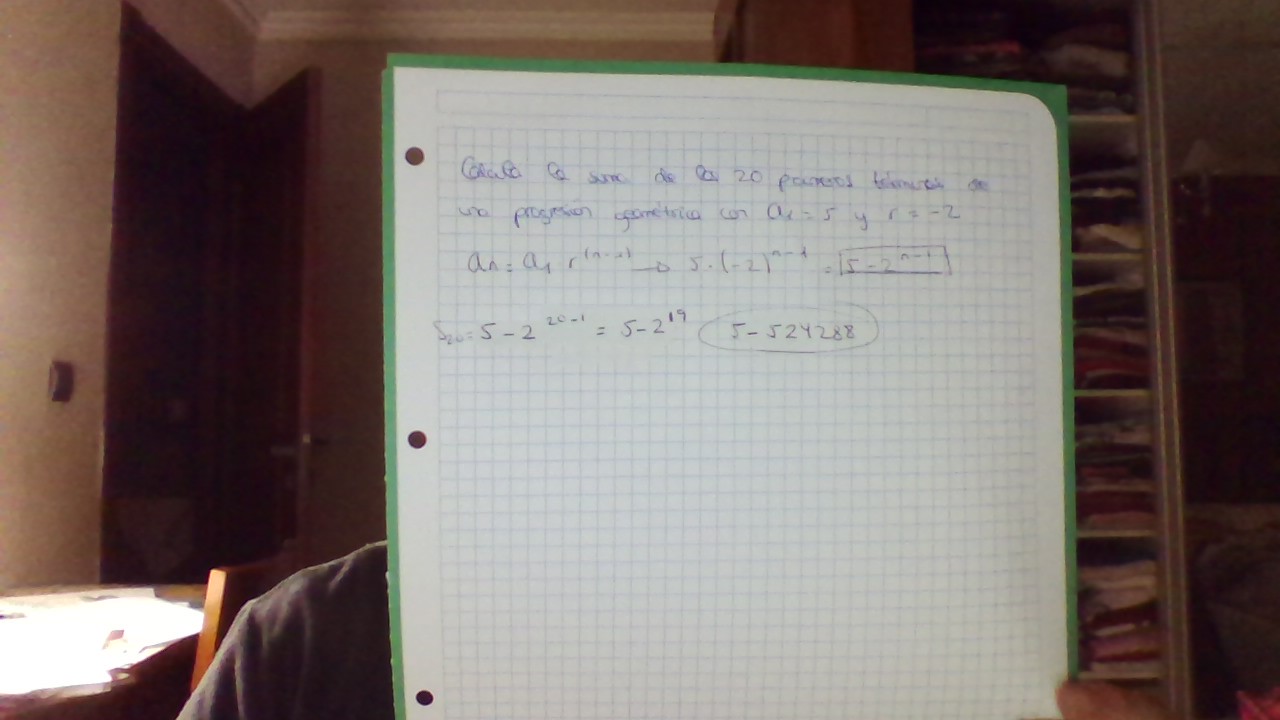 Calcula la suma de los 20 primeros términos de
una progresión geométrica con a₁ = 5 y r = -2
aₙ = a₁ r^(n-1) → 5 · (-2)^n-1 = 5 - 2^n-1
S₂₀ = 5 - 2^20-1 = 5 - 2^19 5 - 524288